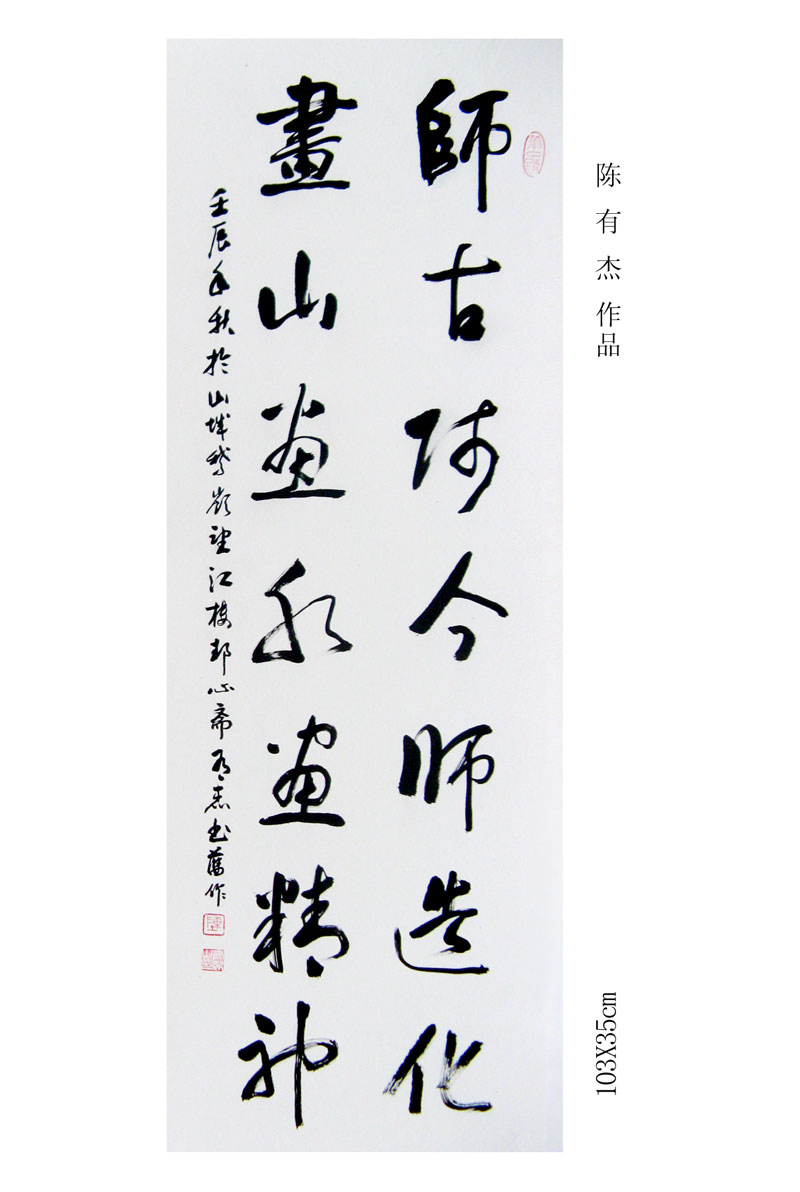 師古师今师造化
畫山畫水畫精神
壬辰年秋於山城鵝嶺望江楼心斋有杰书舊作
陈有杰作品
103X35cm